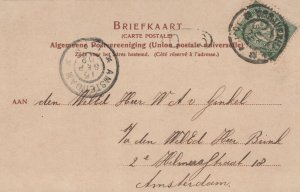 BRIEFKAART
(CARTE POSTALE)
Algemeene Postvereeniging (Union postale universelle)
Zijde voor het adres bestemd. (Côté réservé à l'adresse.)
AMSTERDAM
AAN den WelEd Heer W A v Ginkel
To den WelEd Heer Brink
2e Helmersstraat 18
Amsterdam